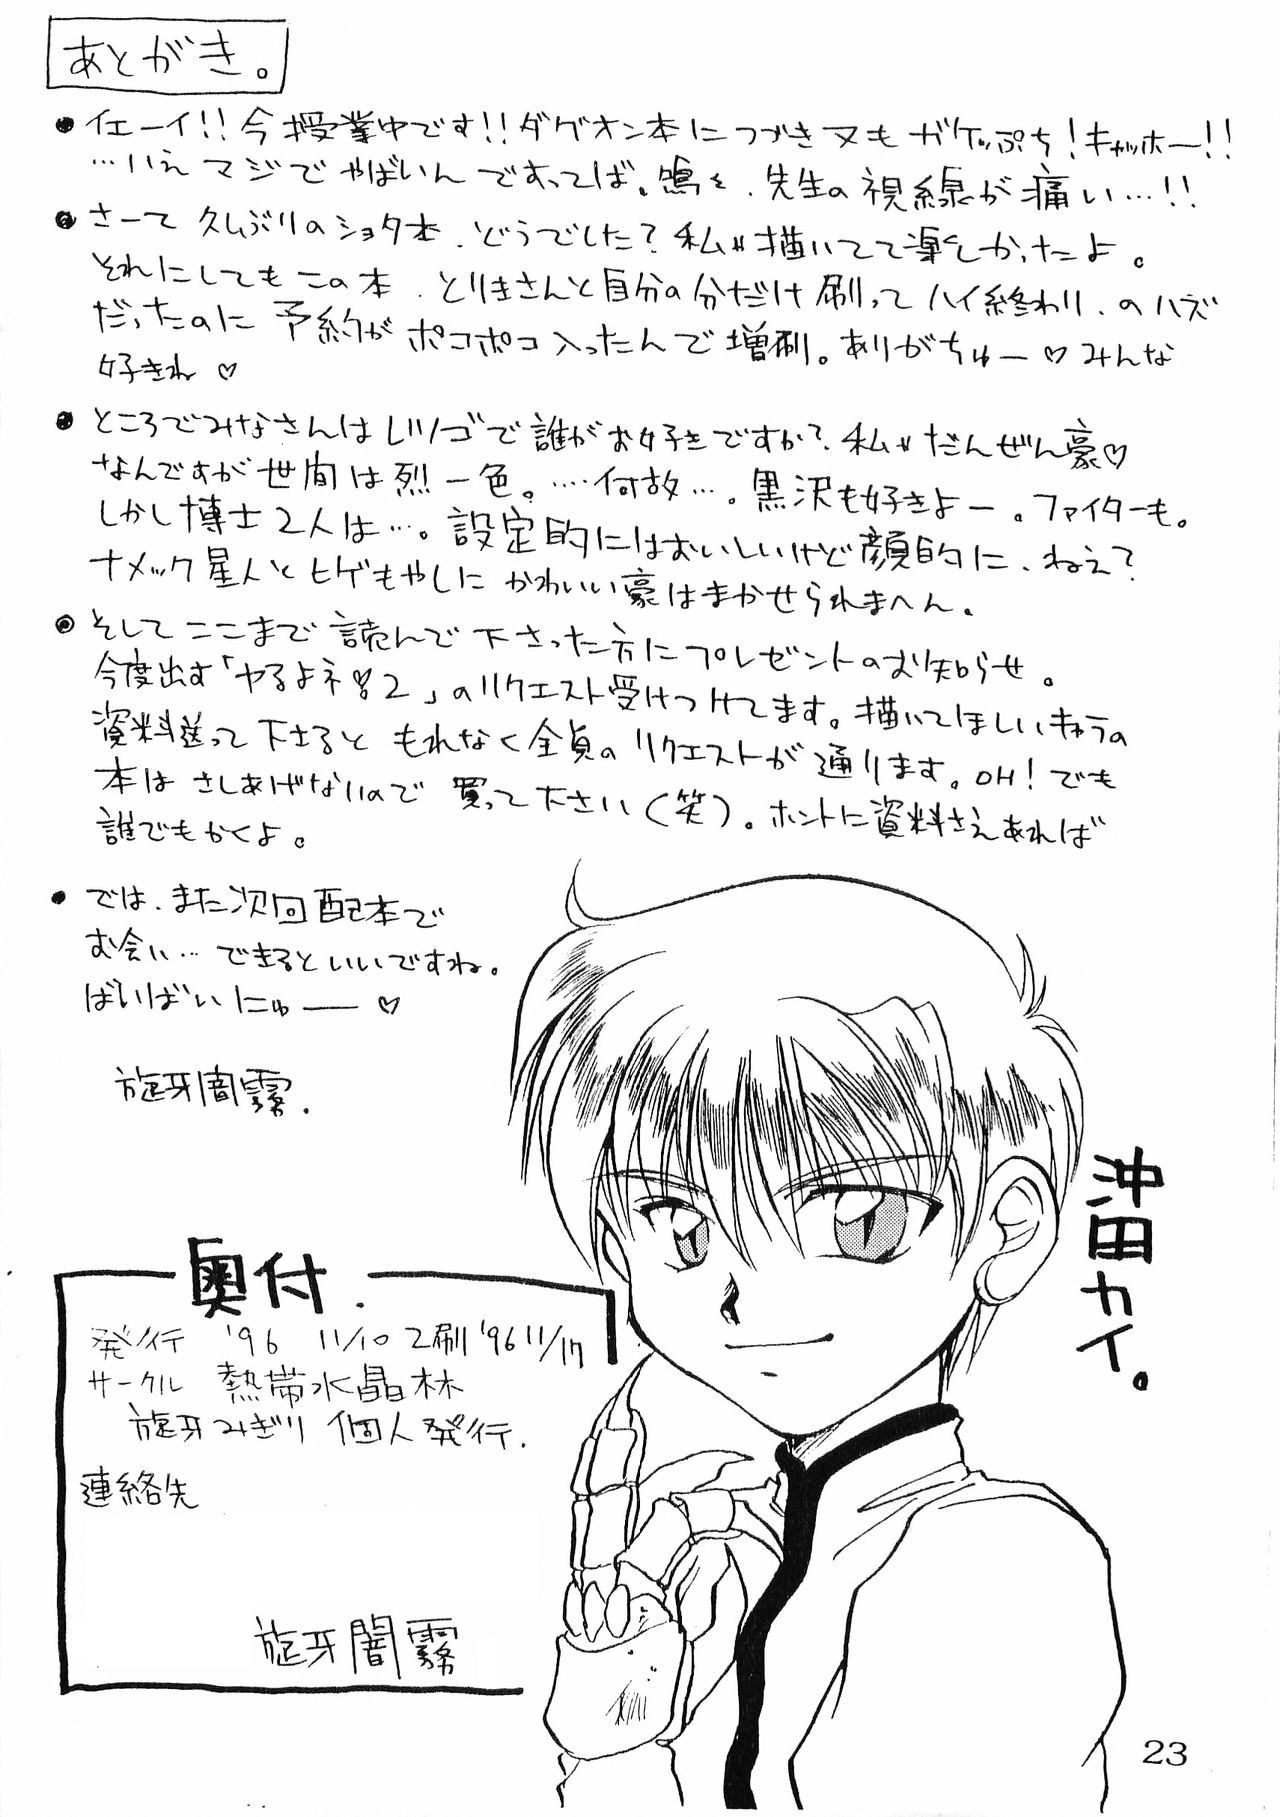 あとがき。
イエーイ!!今授業中です!!ダグオン本につづき又もガケップち!キャッホー!!
…いえマジでやばいんですってば。鳴々、先生の視線が痛い…!!
さーて久ムぶりのショタ本、どうでした?私は描いてて楽しかったよ。
それにしてもこの本、とりまさんと自分の分だけ刷ってハイ終わり、のハズ
だったのに予約がポコポコ入ったんで増刷。ありがちゅー♡みんな
好きね♡
ところでみなさんはレツゴで誰がお好きですか?私はだんぜん豪♡
なんですが世間は烈一色。‥‥何故…。黒沢も好きよー。ファイターも。
しかし博士2人は…。設定的にはおいしいけど顔的に、ねえ?
ナメック星人とヒゲもやしにかわいい豪はまかせられまへん。
そしてここまで読んで下さった方にプレゼントのお知らせ。
今度出す「ヤるよネ2」のリクエスト受けつけてます。描いてほしいキャラの
資料送って下さるともれなく全員のリクエストが通ります。OH!でも
本はさしあげないので買って下さい(笑)。ホントに資料さえあれば
誰でもかくよ。
では、また次回配本で
お会い…できるといいですね。
ばいばいにゅー♡
旋牙闇霧.
沖田カイ。
奥付.
発行 '96 11/10 2刷'96 11/17
サークル 熱帯水晶林
旋牙みぎり個人発行.
連絡先
旋牙闇霧
23